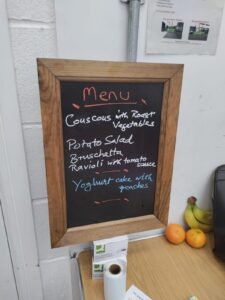 Menu
Couscous with Roast
Vegetables
Potato Salad
Bruschetta
Ravioli with tomato
sauce
Yoghurt cake with
peaches